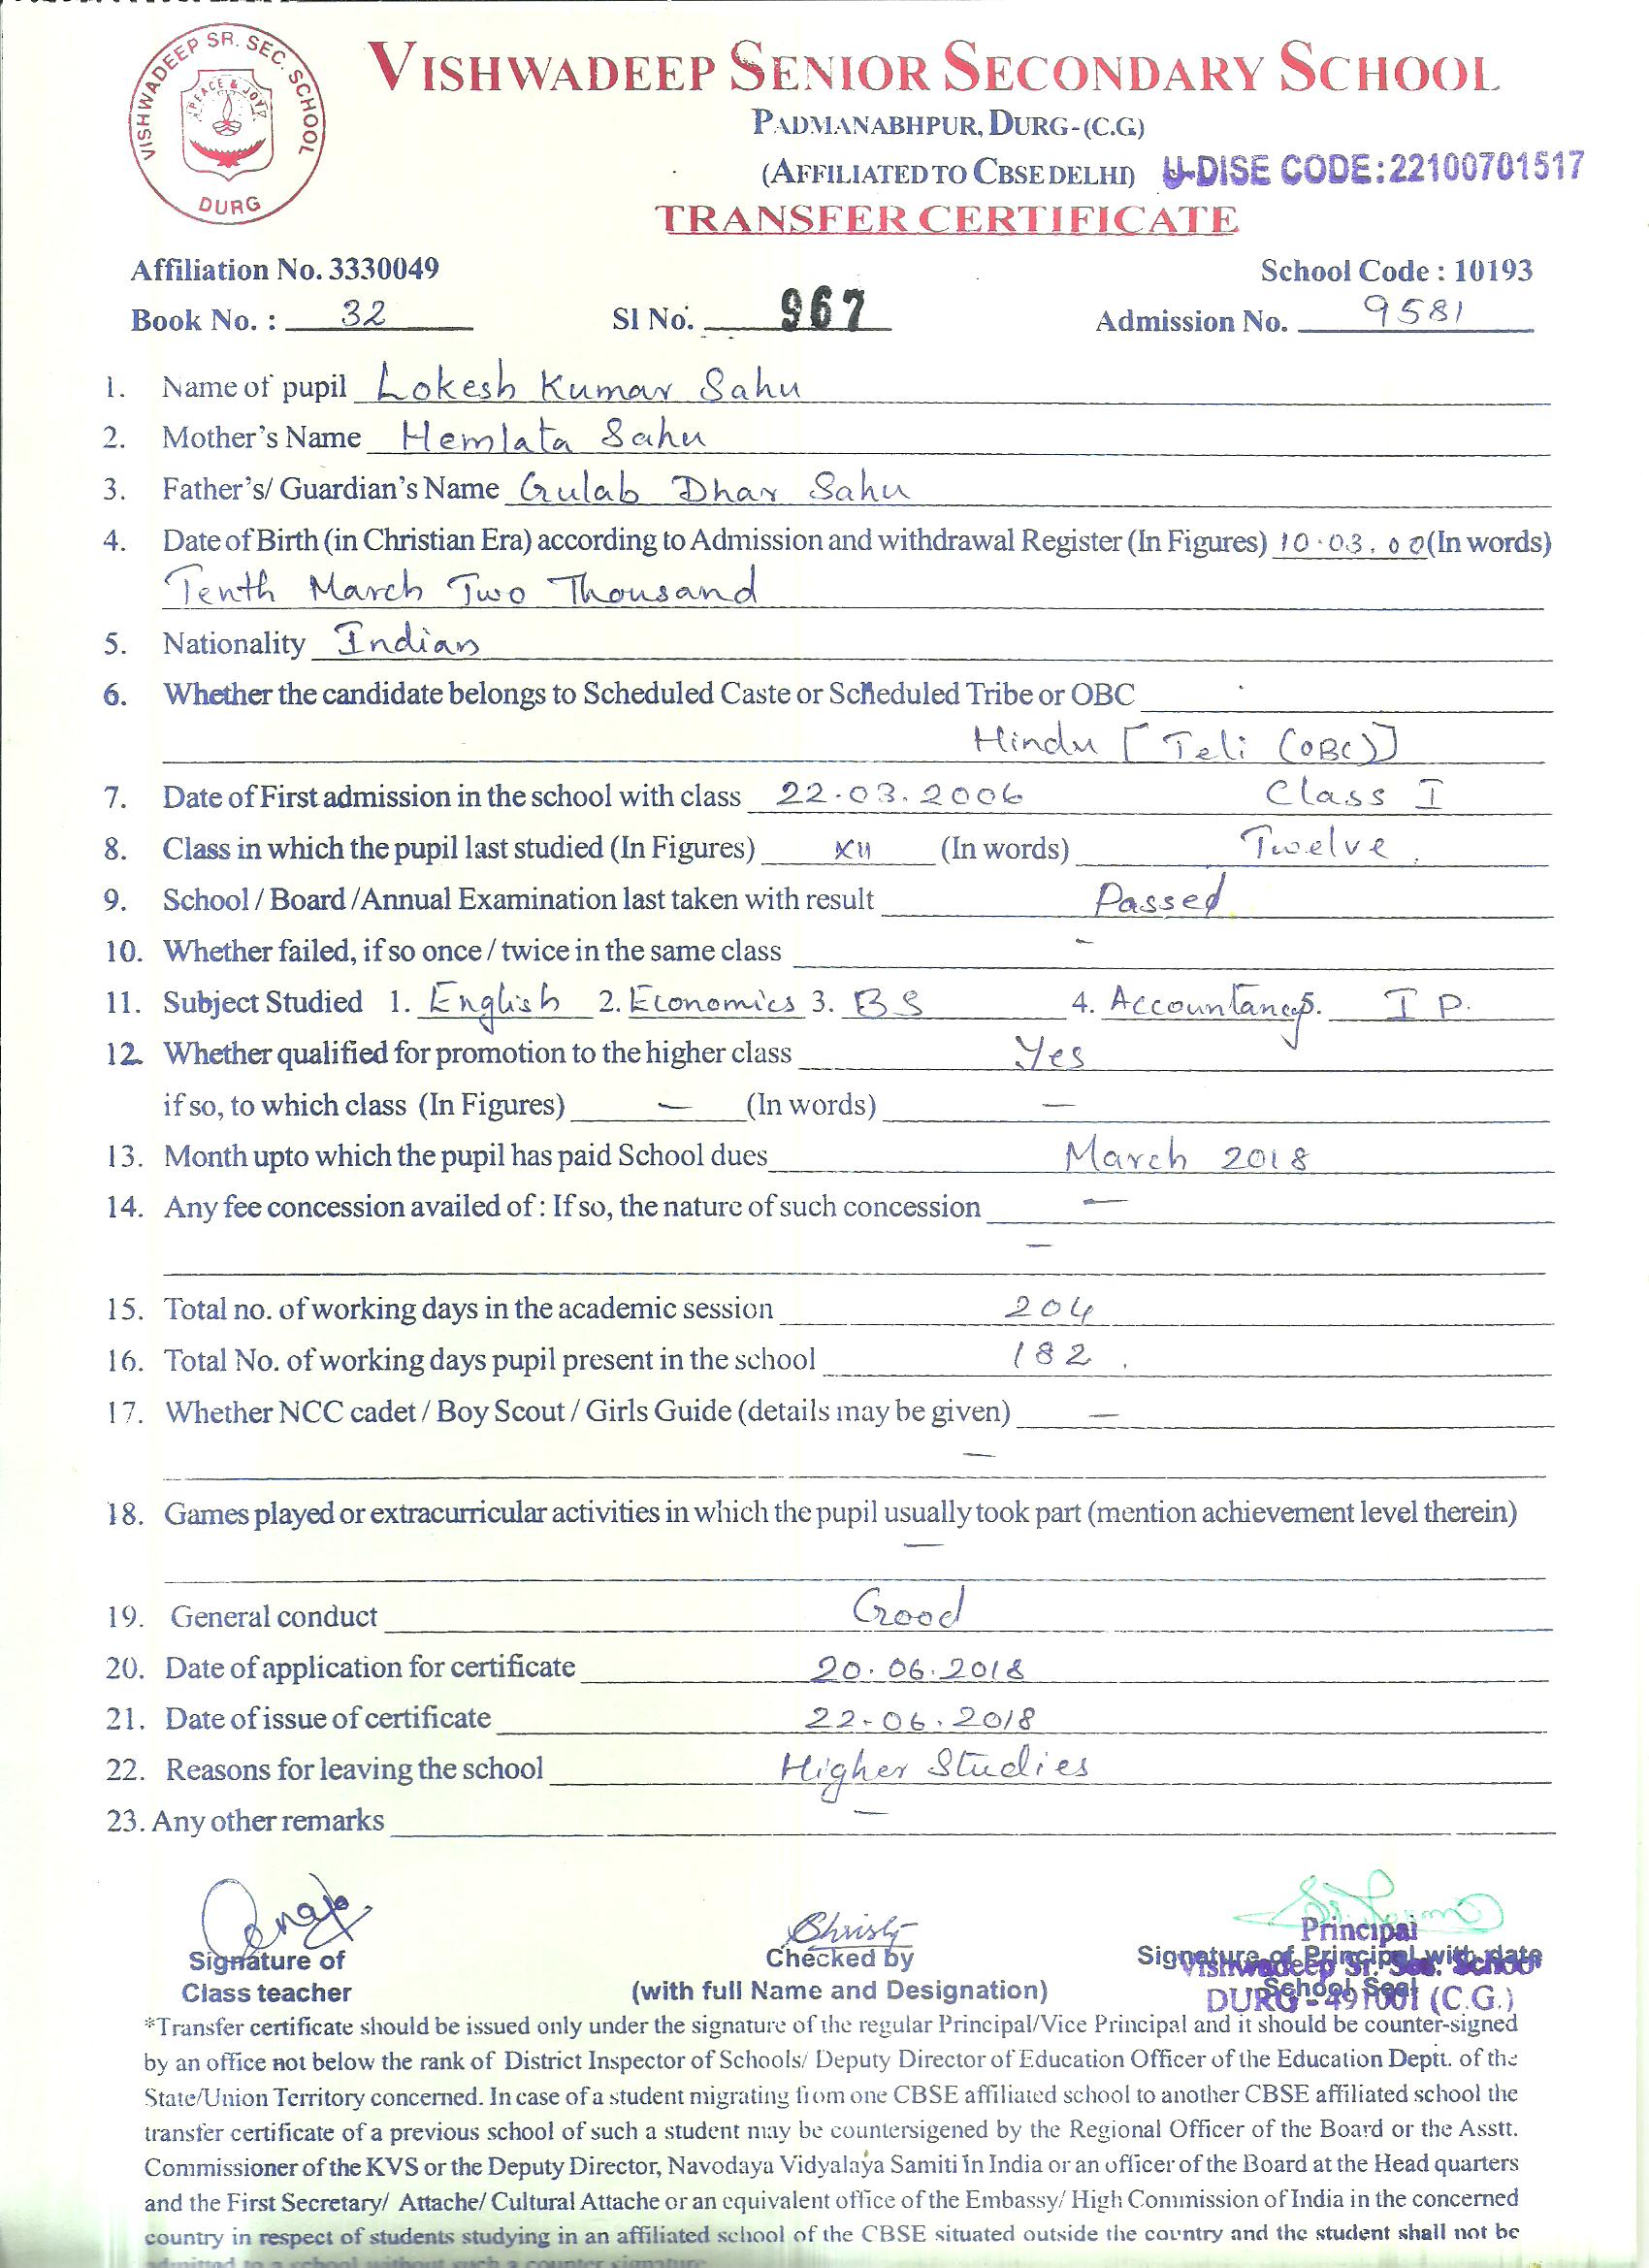 VISHWADEEP SR. SEC. SCHOOL
PEACE & JOY
DURG
VISHWADEEP SENIOR SECONDARY SCHOOL
PADMANABHPUR, DURG-(C.G)
(AFFILIATED TO CBSE DELHI) U-DISE CODE:22100701517
TRANSFER CERTIFICATE
Affiliation No. 3330049 School Code : 10193
Book No. : 32 Sl No. 967 Admission No. 9581
1. Name of pupil Lokesh Kumar Sahu
2. Mother's Name Hemlata Sahu
3. Father's/ Guardian's Name Gulab Dhar Sahu
4. Date of Birth (in Christian Era) according to Admission and withdrawal Register (In Figures) 10.03.00 (In words)
Tenth March Two Thousand
5. Nationality Indian
6. Whether the candidate belongs to Scheduled Caste or Scheduled Tribe or OBC
Hindu [Teli (OBC)]
7. Date of First admission in the school with class 22.03.2006 Class I
8. Class in which the pupil last studied (In Figures) XII (In words) Twelve
9. School / Board /Annual Examination last taken with result Passed
10. Whether failed, if so once / twice in the same class -
11. Subject Studied 1. English 2. Economics 3. BS 4. Accountancy 5. I P.
12. Whether qualified for promotion to the higher class Yes
if so, to which class (In Figures) — (In words) —
13. Month upto which the pupil has paid School dues March 2018
14. Any fee concession availed of : If so, the nature of such concession —
—
15. Total no. of working days in the academic session 204
16. Total No. of working days pupil present in the school 182.
17. Whether NCC cadet / Boy Scout / Girls Guide (details may be given) —
—
18. Games played or extracurricular activities in which the pupil usually took part (mention achievement level therein)
—
19. General conduct Good
20. Date of application for certificate 20.06.2018
21. Date of issue of certificate 22-06.2018
22. Reasons for leaving the school Higher Studies
23. Any other remarks —
Principal
Signature of Checked by Signature of Principal with date
Vishwadeep Sr. Sec. School
Class teacher (with full Name and Designation) School Seal
DURG - 491001 (C.G.)
*Transfer certificate should be issued only under the signature of the regular Principal/Vice Principal and it should be counter-signed
by an office not below the rank of District Inspector of Schools/ Deputy Director of Education Officer of the Education Deptt. of the
State/Union Territory concerned. In case of a student migrating from one CBSE affiliated school to another CBSE affiliated school the
transfer certificate of a previous school of such a student may be countersigned by the Regional Officer of the Board or the Asstt.
Commissioner of the KVS or the Deputy Director, Navodaya Vidyalaya Samiti in India or an officer of the Board at the Head quarters
and the First Secretary/ Attache/ Cultural Attache or an equivalent office of the Embassy/ High Commission of India in the concerned
country in respect of students studying in an affiliated school of the CBSE situated outside the country and the student shall not be
admitted to a school without such a counter signature